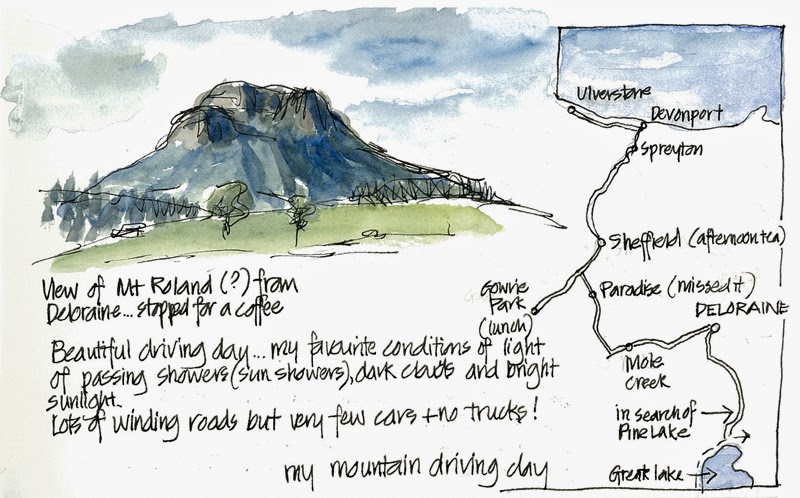 View of Mt Roland (?) from
Deloraine... stopped for a coffee
Beautiful driving day... my favourite conditions of light
of passing showers (sun showers), dark clouds and bright
sunlight.
Lots of winding roads but very few cars + no trucks!
my mountain driving day
Ulverstone
Devonport
Spreyton
Sheffield (afternoon tea)
Paradise (missed it)
Gowrie
Park
(lunch)
DELORAINE
Mole
Creek
in search of
Pine Lake
Great lake